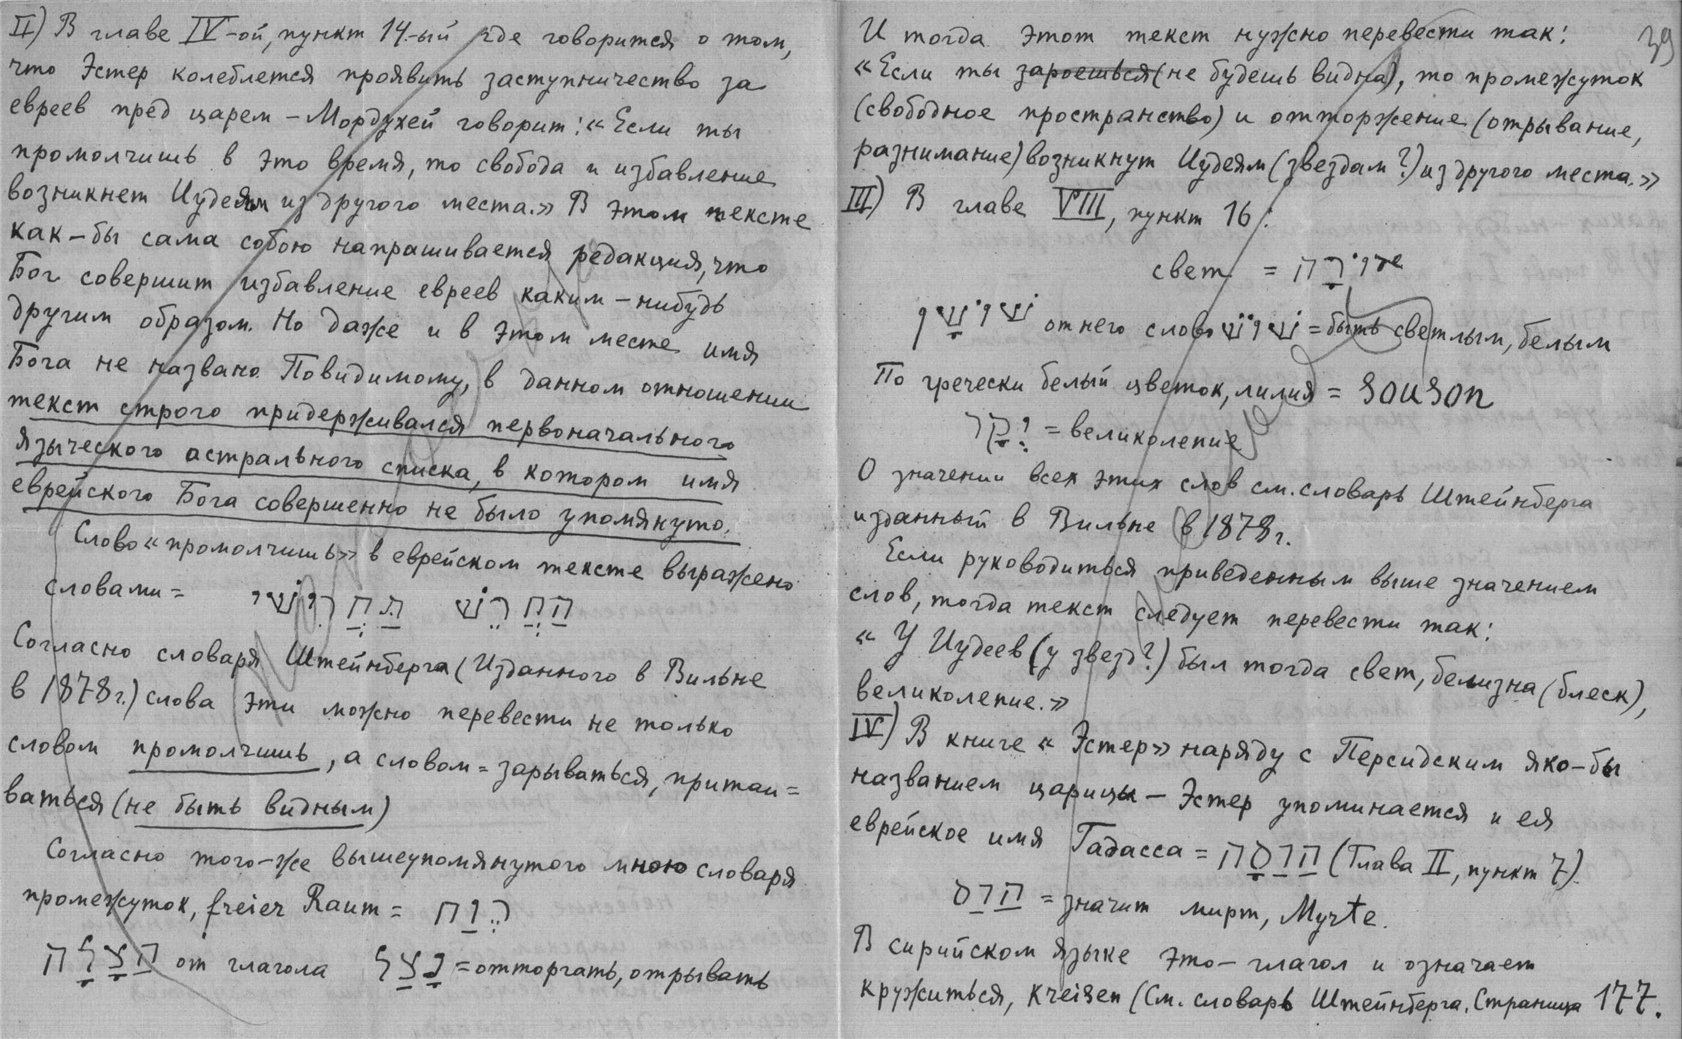 II) В главе IV-ой, пункт 14-ый где говорится о том,
что Эстер колеблется проявить заступничество за
евреев пред царем – Мордухей говорит: «Если ты
промолчишь в это время, то свобода и избавление
возникнет Иудеям из другого места.» В этом тексте
как-бы сама собою напрашивается редакция, что
Бог совершит избавление евреев каким-нибудь
другим образом. Но даже и в этом месте имя
Бога не названо. Повидимому, в данном отношении
текст строго придерживался первоначального
языческого астрального списка, в котором имя
еврейского Бога совершенно не было упомянуто.
Слово «промолчишь» в еврейском тексте выражено
словами = הַחֲרֵשׁ תַּחֲרִישִׁי
Согласно словаря Штейнберга (Изданного в Вильне
в 1878 г.) слова эти можно перевести не только
словом промолчишь, а словом = зарываться, притаи=
ваться (не быть видным)
Согласно того-же вышеупомянутого мною словаря
промежуток, freier Raum = רֶוַח
הַצָּלָה от глагола נָצַל = отторгать, отрывать
39
И тогда этот текст нужно перевести так:
«Если ты зароешься (не будешь видна), то промежуток
(свободное пространство) и отторжение (отрывание,
разнимание) возникнут Иудеям (звездам?) из другого места.»
III) В главе VIII, пункт 16:
свет = אוֹרָה
שָׂשׂוֹן от него слово שׂוֹשׂ = быть светлым, белым
По гречески белый цветок, лилия = souson
יְקָר = великолепие
О значении всех этих слов см. словарь Штейнберга
изданный в Вильне в 1878 г.
Если руководиться приведенным выше значением
слов, тогда текст следует перевести так:
« У Иудеев (у звезд?) был тогда свет, белизна (блеск),
великолепие.»
IV) В книге « Эстер» наряду с Персидским яко-бы
названием царицы – Эстер упоминается и ея
еврейское имя Гадасса = הֲדַסָּה (Глава II, пункт 7).
הֲדַס = значит мирт, Myrte.
В сирийском языке это – глагол и означает
кружиться, Kreisen (См. словарь Штейнберга. Страница 177.